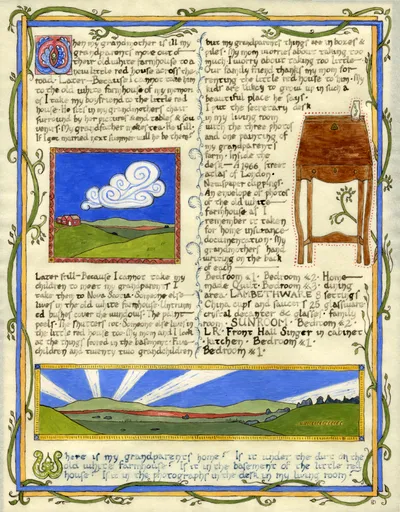 When my grandmother is ill my
grandparents move out of
their old white farmhouse to a
new little red house across the
road. Later - Because I cannot take him
to the old white farmhouse of my memor
ies I take my boyfriend to the little red
house. He sits in my grandmothers chair
surround by her pictures & end tables & sou
venirs. My grandfather makes tea. He is ill.
If I get married next summer will he be there?
Later still - Because I cannot take my
children to meet my grandparents I
take them to Nova Scotia. Someone else
lives in the old white farmhouse. Untrimm
ed bushes cover the windows. The paint
peels. The shutters rot. Someone else lives in
the little red house too. My mom and I look
at the things stored in the basement. Five
children and twenty two grandchildren
but my grandparents things are in boxes &
piles. My mom worries about taking too
much I worry about taking too little.
Our family friend thanks my mom for
renting the little red house to him. My
kids are lucky to grow up in such a
beautiful place he says.
I put the secretary desk
in my living room
with the three photos
and one painting of
my grandparents
farm. Inside the
desk - A 1966 street
atlas of London.
Newspaper clippings.
An envelope of photos
of the old white
farmhouse as I
remember it taken
for home insurance
documentation. My
grandmothers hand
writing on the back
of each
Bedroom #1. Bedroom #2. Home
made Quilt. Bedroom #3. dining
area. LAMBTHWARE 8 settings
China cups and saucers 25 glassware
crystal decanter & glasses. family
room. SUNROOM. Bedroom #2.
LR. Front Hall Singer in cabinet
kitchen. Bedroom #1.
Bedroom #1
Where is my grandparents home? Is it under the dirt on the
old white farmhouse? Is it in the basement of the little red
house? Is it in the photographs in the desk in my living room?